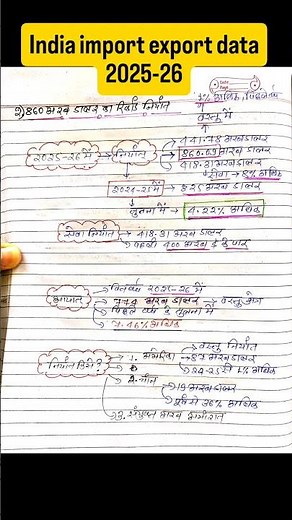 India import export data
2025-26
2) 860 अरब डालर का रिकॉर्ड निर्यात
वस्तु में
441.78 अरब डालर
2025-26 में → निर्यात → 860.09 अरब डालर
418.31 अरब डालर
सेवा → 8% अधिक
2024-25 में → 825 अरब डालर
तुलना में → 4.22% अधिक
सेवा निर्यात → 418.31 अरब डालर
पहली 400 अरब $ के पार
आयात
वित्तवर्ष 2025-26 में
774 अरब डालर → वस्तु
पिछले वर्ष के तुलना में
7.46% अधिक
वस्तु निर्यात
निर्यात किसे?
1. अमेरिका → 87 अरब डालर
24-25 से 1% अधिक
2. चीन
19 अरब डालर
36% अधिक
3. संयुक्त अरब अमीरात